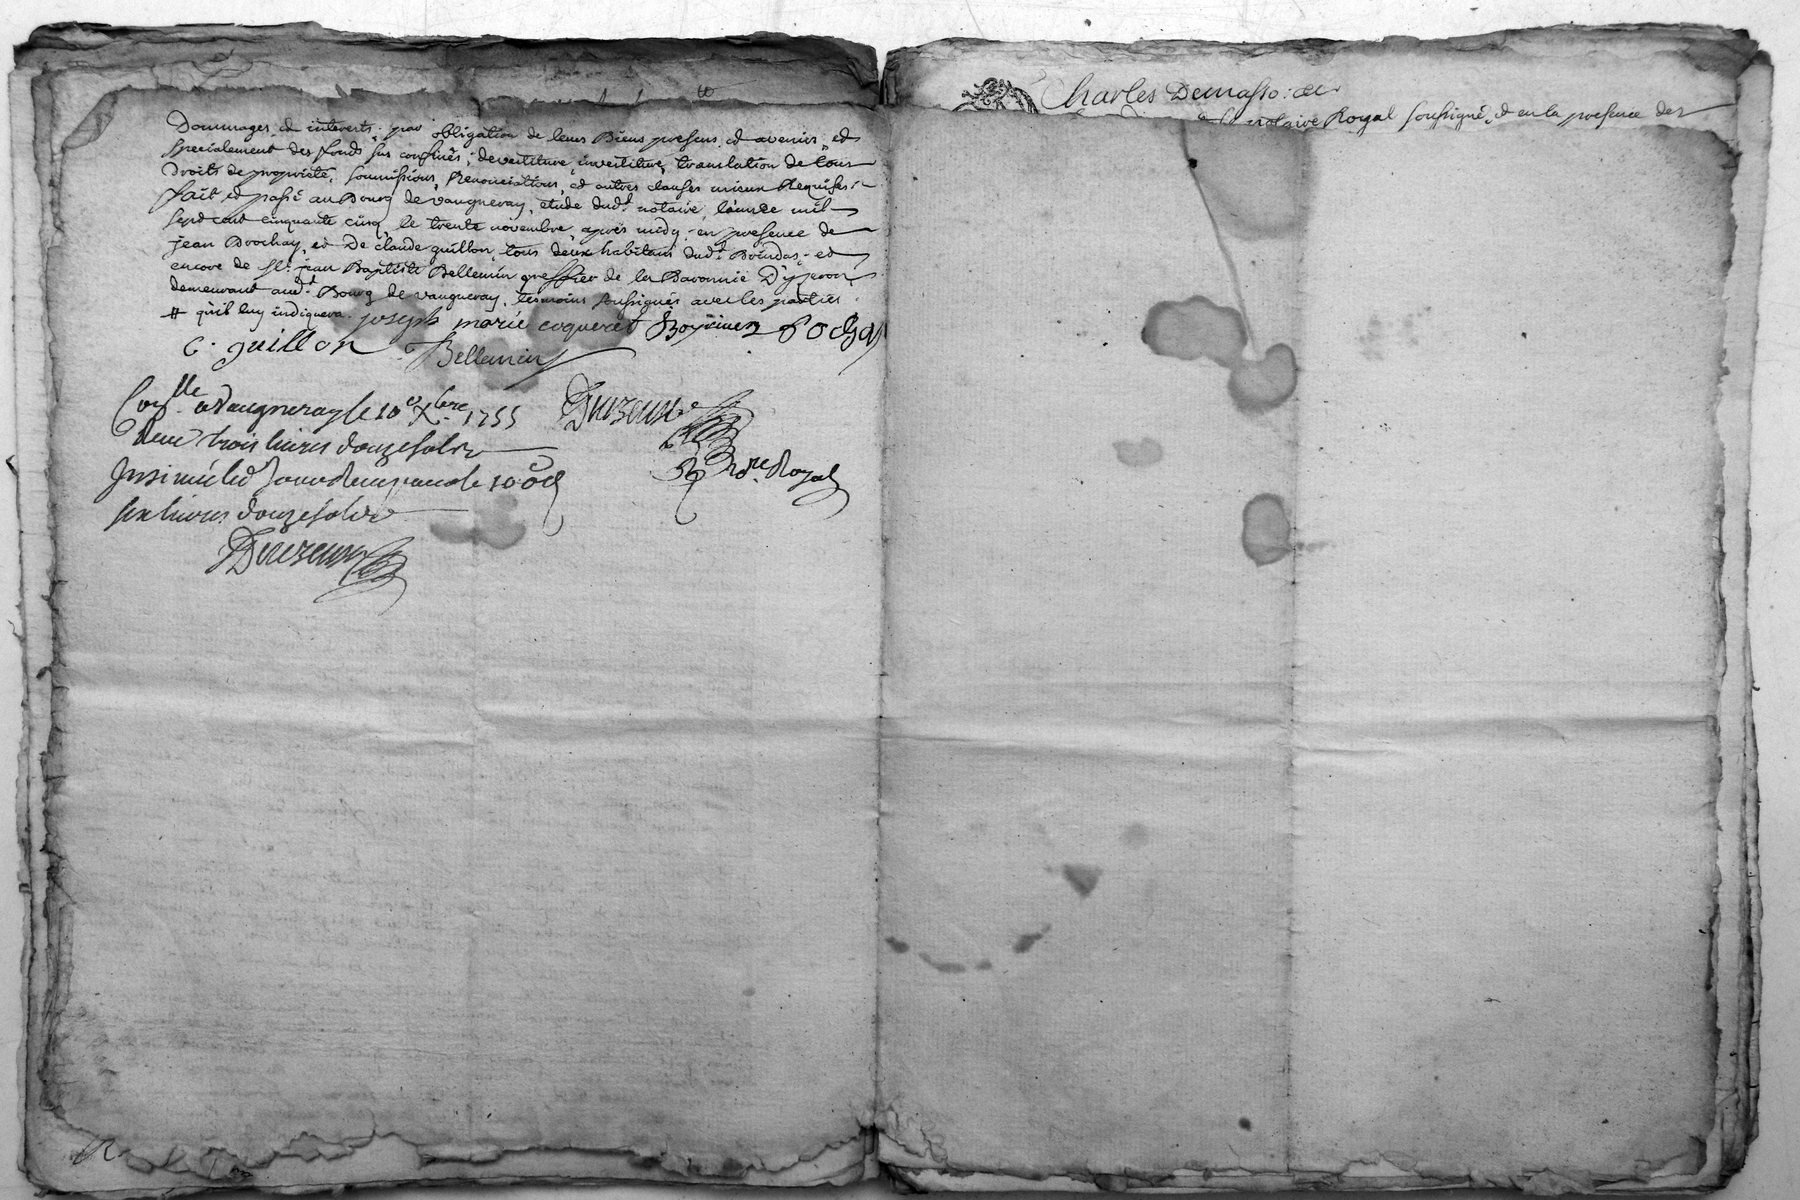 Dommages et interests, par obligation de leurs Biens presens et avenir, et
specialement des fonds sus confinés, devestiture, investiture, translation de tous
Droits de proprieté, soumissions, Renonciations, et autres clauses mieux Requises.
fait et passé au Bourg de vaugneray, etude dudt. notaire, l'année mil
sept cent cinquante cinq, le trente novembre, après midy, en presence de
jean Brochay, et De claude guillon, tous deux habitans dudt. Brindas, et
encore de Sr. jean Baptiste Bellemin greffier de la Baronnie D'yzeron
demeurant audt. Bourg de vaugneray, tesmoins soussignés avec les parties.
# qu'il luy indiquera. joseph marie coqueret
C. guillon Bellemin
Conlle. a Vaugneray le 10e Xbre 1755
Reçu trois livres douze sols
nore. Royal
Insinué led jour
six livres douze sols
Charles Demasso: ec
notaire Royal soussigné, et en la presence des